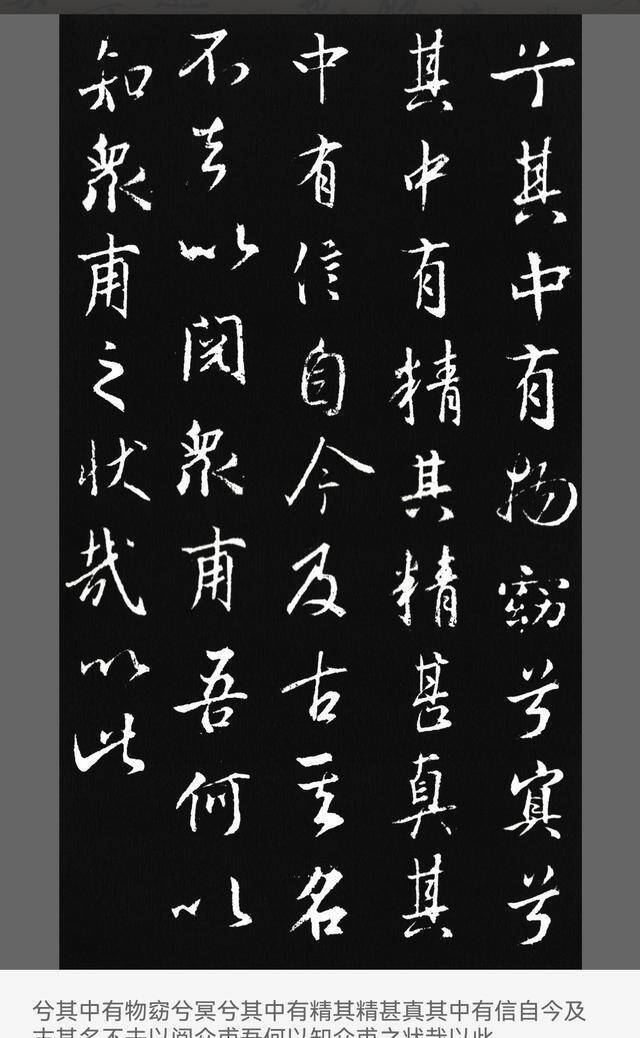 兮其中有物窈兮冥兮
其中有精其精甚真其
中有信自今及古其名
不去以阅众甫吾何以
知众甫之状哉以此
兮其中有物窈兮冥兮其中有精其精甚真其中有信自今及
古其名不去以阅众甫吾何以知众甫之状哉以此